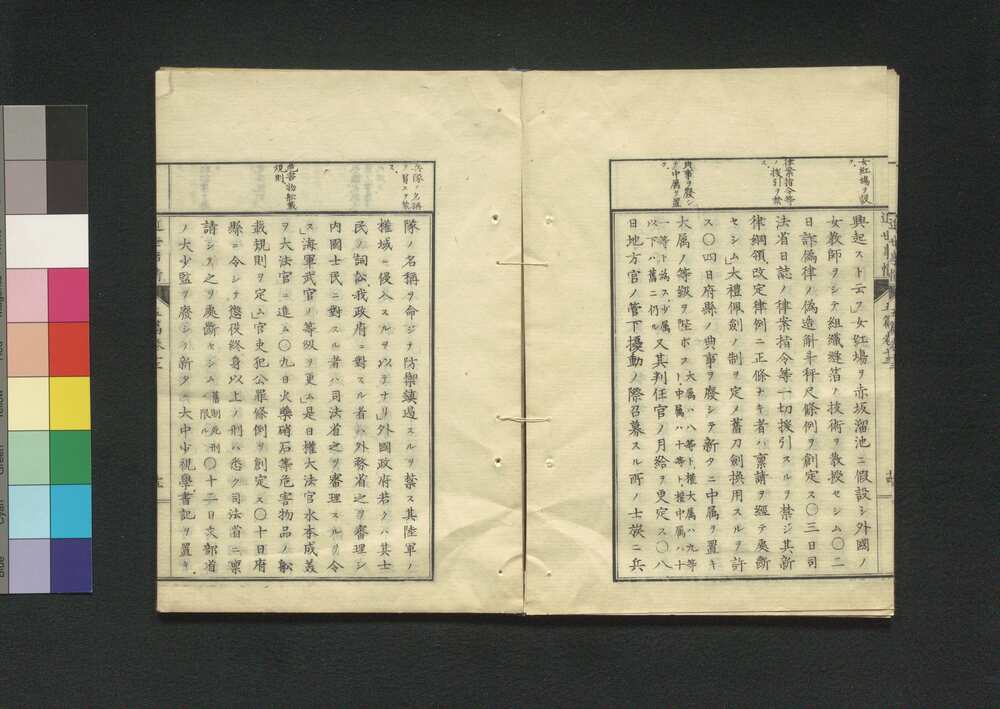 女紅場ヲ設
ク
律案指令等
ノ援引ヲ禁
ス
典事ヲ廢シ
中属ヲ置
ク
近世事情
五篇巻十三
興起スト云フ」女紅場ヲ赤坂溜池ニ假設シ外國ノ
女教師ヲシテ組織縫箔ノ技術ヲ教授セシム〇二
日詐僞律ノ偽造斛斗秤尺條例ヲ創定ス〇三日司
法省日誌ノ律案指令等一切援引スルヲ禁ジ其新
律綱領改定律例ニ正條ナキ者ハ稟請ヲ經テ處斷
セシム」大禮佩劍ノ制ヲ定メ舊刀劍換用スルヲ許
ス〇四日府縣ノ典事ヲ廢シテ新タニ中属ヲ置キ
大属ノ等級ヲ陞ボス大属ハ八等ト權大属ハ九等
ト中属ハ十等ト權中属ハ十
一等ト為ス少属
以下ハ舊ニ仍ル又其判任官ノ月給ヲ更定ス〇八
日地方官ノ管下擾動ノ際召募スル所ノ士族ニ兵
兵隊ノ名稱
ヲ冒スヲ禁
ス
危害物舩載
規則
隊ノ名稱ヲ命ジテ防禦鎮遏スルヲ禁ス其陸軍ノ
權域ニ侵入スルヲ以テナリ」外國政府若クハ其士
民ノ詞訟我政府ニ對スル者ハ外務省之ヲ審理シ
内國士民ニ對スル者ハ司法省之ヲ審理スルヲ令
ス」海軍武官ノ等級ヲ更ム」是日權大法官水本成美
ヲ大法官ニ進ム〇九日火藥硝石等危害物品ノ舩
載規則ヲ定ム」官吏犯公罪條例ヲ創定ス〇十日府
縣ニ令シテ懲役終身以上ノ刑ハ悉ク司法省ニ稟
請シテ之ヲ處斷セシム舊制死刑
ニ限ル〇十二日文部省
ノ大少監ヲ廢シテ新タニ大中少視學書記ヲ置キ